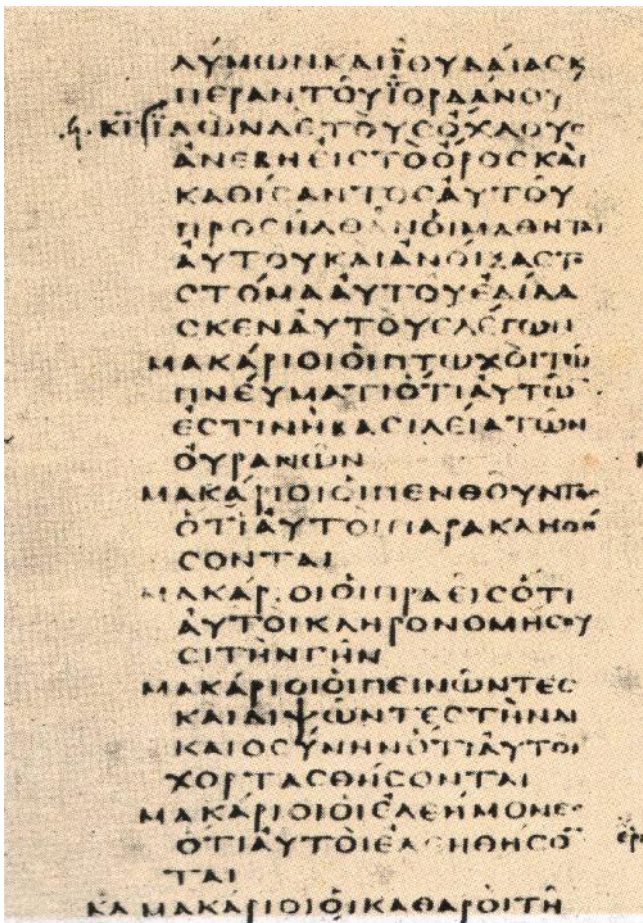 ΛΥΜΩΝΚΑΙΪΟΥΔΑΙΑϹΚ
ΠΕΡΑΝΤΟΥΪΟΡΔΑΝΟΥ
ΪΔΩΝΔΕΤΟΥϹΟΧΛΟΥϹ
ΑΝΕΒΗΕΙϹΤΟΟΡΟϹΚΑΙ
ΚΑΘΙϹΑΝΤΟϹΑΥΤΟΥ
ΠΡΟϹΗΛΘΑΝΟΙΜΑΘΗΤΑΙ
ΑΥΤΟΥΚΑΙΑΝΟΙΞΑϹΤΟ
ϹΤΟΜΑΑΥΤΟΥΕΔΙΔΑ
ϹΚΕΝΑΥΤΟΥϹΛΕΓΩΝ
ΜΑΚΑΡΙΟΙΟΙΠΤΩΧΟΙΤΩ
ΠΝΕΥΜΑΤΙΟΤΙΑΥΤΩ̅
ΕϹΤΙΝΗΒΑϹΙΛΕΙΑΤΩΝ
ΟΥΡΑΝΩΝ
ΜΑΚΑΡΙΟΙΟΙΠΕΝΘΟΥΝΤΕϹ
ΟΤΙΑΥΤΟΙΠΑΡΑΚΛΗΘΗ
ϹΟΝΤΑΙ
ΜΑΚΑΡΙΟΙΟΙΠΡΑΕΙϹΟΤΙ
ΑΥΤΟΙΚΛΗΡΟΝΟΜΗϹΟΥ
ϹΙΤΗΝΓΗΝ
ΜΑΚΑΡΙΟΙΟΙΠΕΙΝΩΝΤΕϹ
ΚΑΙΔΙΨΩΝΤΕϹΤΗΝΔΙ
ΚΑΙΟϹΥΝΗΝΟΤΙΑΥΤΟΙ
ΧΟΡΤΑϹΘΗϹΟΝΤΑΙ
ΜΑΚΑΡΙΟΙΟΙΕΛΕΗΜΟΝΕϹ
ΟΤΙΑΥΤΟΙΕΛΕΗΘΗϹΟ̅
ΤΑΙ
ΚΑ ΜΑΚΑΡΙΟΙΟΙΚΑΘΑΡΟΙΤΗ